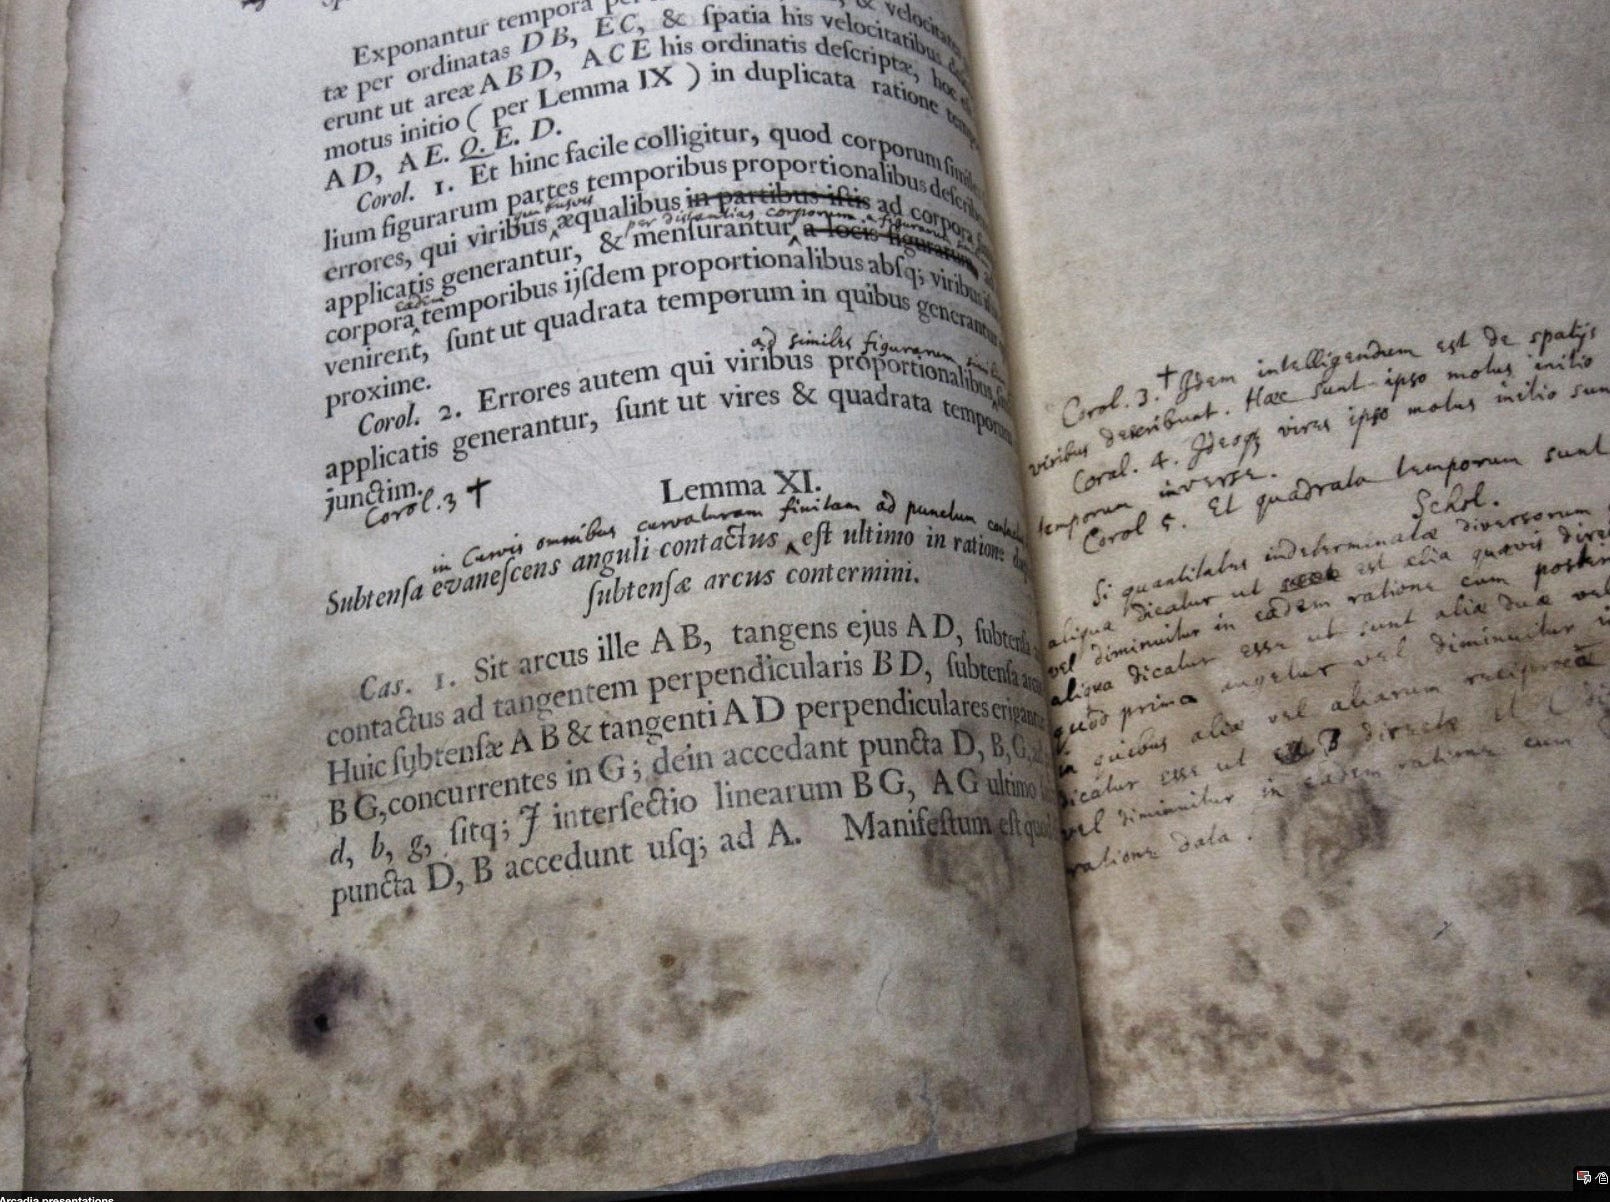 Exponantur tempora per
tæ per ordinatas D B, E C, & ſpatia his velocitatibus
erunt ut areæ A B D, A C E his ordinatis deſcriptæ, hoc
motus initio ( per Lemma IX ) in duplicata ratione
A D, A E. Q. E. D.
Corol. 1. Et hinc facile colligitur, quod corporum
lium figurarum partes temporibus proportionalibus
quibusvis
errores, qui viribus æqualibus in partibus iſtis ad corpora
per distantias corporum a figurarum
applicatis generantur, & menſurantur a locis figurarum
corpora temporibus ijſdem proportionalibus abſq; viribus
eadem
venirent, ſunt ut quadrata temporum in quibus generantur
proxime.
ad similes figurarum
Corol. 2. Errores autem qui viribus proportionalibus
applicatis generantur, ſunt ut vires & quadrata temporum
junctim.
Corol. 3 †
Lemma XI.
in Curvis omnibus curvaturam finitam ad punctum
Subtenſa evaneſcens anguli contactus eſt ultimo in ratione
ſubtenſæ arcus contermini.
Cas. 1. Sit arcus ille A B, tangens ejus A D, ſubtenſa
contactus ad tangentem perpendicularis B D, ſubtenſa
Huic ſubtenſæ A B & tangenti A D perpendiculares erigantur
B G, concurrentes in G; dein accedant puncta D, B, G,
d, b, g, ſitq; J interſectio linearum B G, A G ultimo
puncta D, B accedunt uſq; ad A. Manifeſtum eſt
Corol. 3. † Idem intelligendum est de spatijs
viribus describunt. Hæc sunt ipso motus initio
Corol. 4. Ideoq; vires ipso motus initio
temporum inverse.
Corol 5. Et quadrata temporum sunt
Schol.
Si quantitates indeterminatæ diversorum
aliqua dicatur ut est alia quævis
vel diminuitur in eadem ratione cum
aliqua dicatur esse ut sunt aliæ duæ vel
quod prima augetur vel diminuitur
in quibus aliæ vel aliarum reciprocæ
dicatur esse ut B directe et C
vel diminuitur in eadem ratione cum
ratione data.
Arcadia presentations